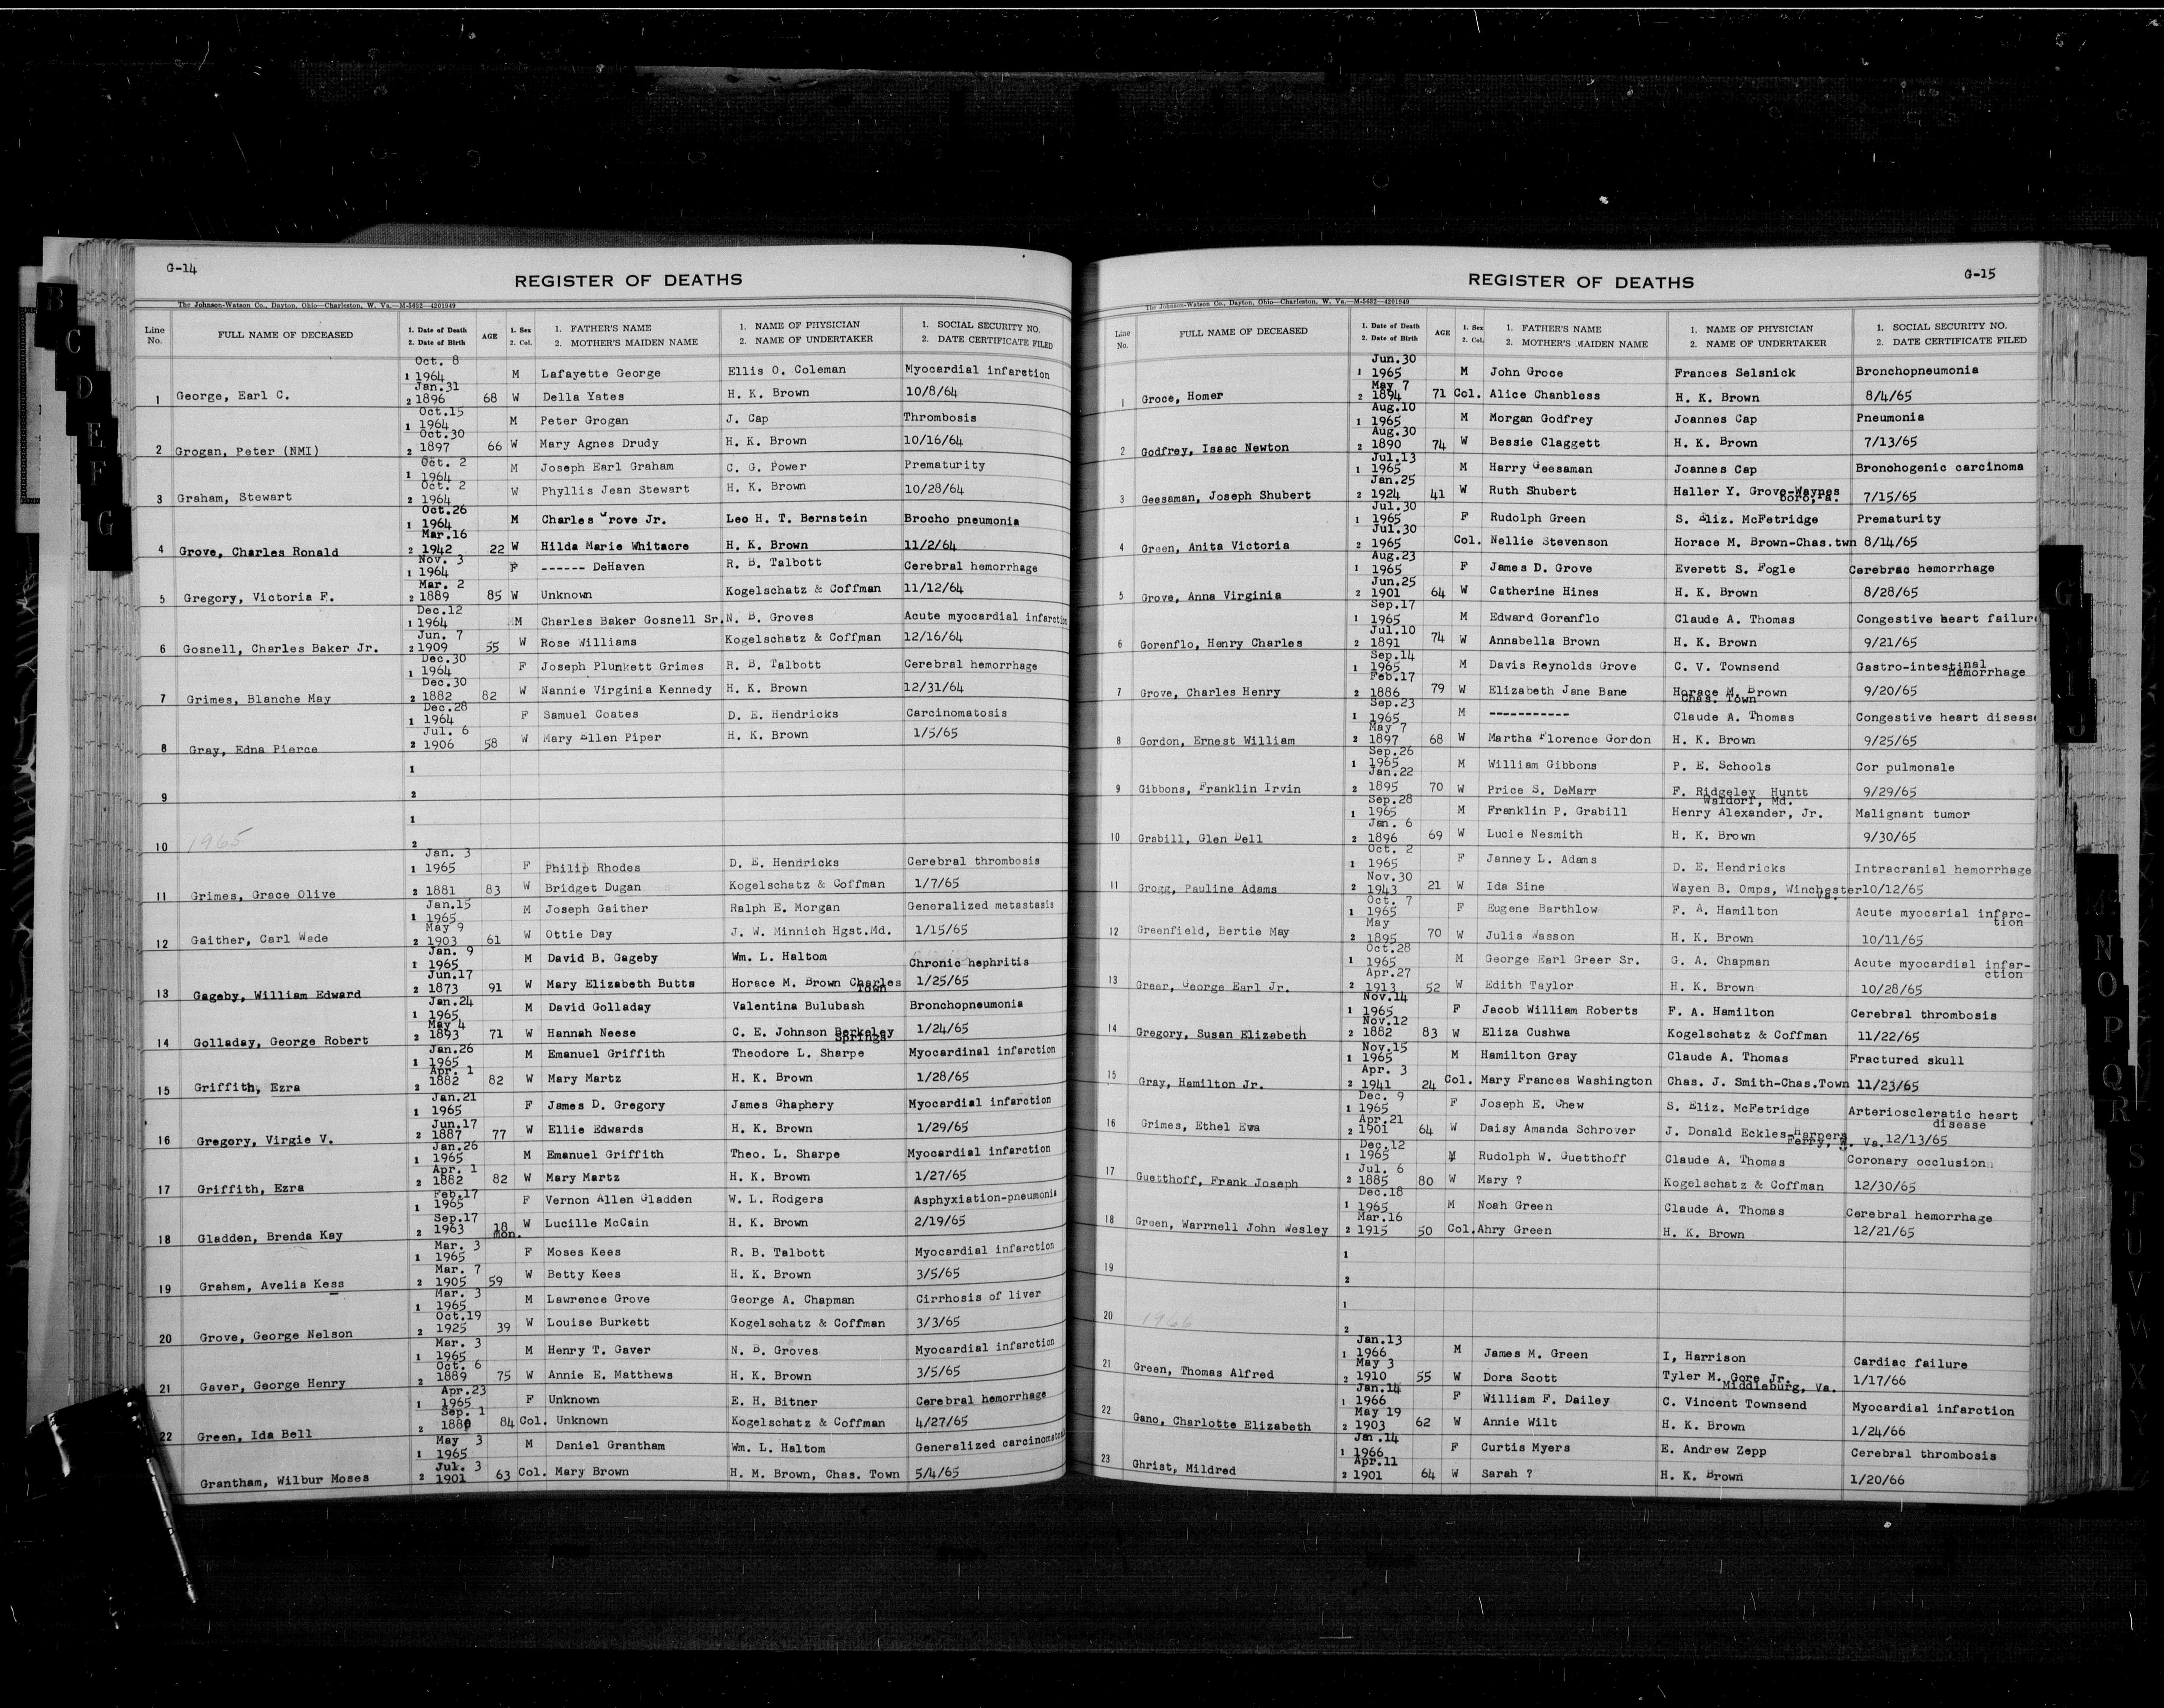 G-14
REGISTER OF DEATHS
The Johnson-Watson Co., Dayton, Ohio—Charleston, W. Va.—M-5632—4201949
Line No. FULL NAME OF DECEASED 1. Date of Death 2. Date of Birth AGE 1. Sex 2. Col. 1. FATHER'S NAME 2. MOTHER'S MAIDEN NAME 1. NAME OF PHYSICIAN 2. NAME OF UNDERTAKER 1. SOCIAL SECURITY NO. 2. DATE CERTIFICATE FILED
Oct. 8
1 1964 M Lafayette George Ellis O. Coleman Myocardial infarction
Jan.31
1 George, Earl C. 2 1896 68 W Della Yates H. K. Brown 10/8/64
Oct.15
1 1964 M Peter Grogan J. Cap Thrombosis
Oct.30
2 Grogan, Peter (NMI) 2 1897 66 W Mary Agnes Drudy H. K. Brown 10/16/64
Oct. 2
1 1964 M Joseph Earl Graham C. G. Power Prematurity
Oct. 2
3 Graham, Stewart 2 1964 W Phyllis Jean Stewart H. K. Brown 10/28/64
Oct.26
1 1964 M Charles Grove Jr. Leo H. T. Bernstein Brocho pneumonia
Mar.16
4 Grove, Charles Ronald 2 1942 22 W Hilda Marie Whitacre H. K. Brown 11/2/64
Nov. 3
1 1964 F ------ DeHaven R. B. Talbott Cerebral hemorrhage
Mar. 2
5 Gregory, Victoria F. 2 1889 85 W Unknown Kogelschatz & Coffman 11/12/64
Dec.12
1 1964 M Charles Baker Gosnell Sr. N. B. Groves Acute myocardial infarction
Jun. 7
6 Gosnell, Charles Baker Jr. 2 1909 55 W Rose Williams Kogelschatz & Coffman 12/16/64
Dec.30
1 1964 F Joseph Plunkett Grimes R. B. Talbott Cerebral hemorrhage
Dec.30
7 Grimes, Blanche May 2 1882 82 W Nannie Virginia Kennedy H. K. Brown 12/31/64
Dec.28
1 1964 F Samuel Coates D. E. Hendricks Carcinomatosis
Jul. 6
8 Gray, Edna Pierce 2 1906 58 W Mary Ellen Piper H. K. Brown 1/5/65
1
9 2
1
10 1965 2
Jan. 3
1 1965 F Philip Rhodes D. E. Hendricks Cerebral thrombosis
11 Grimes, Grace Olive 2 1881 83 W Bridget Dugan Kogelschatz & Coffman 1/7/65
Jan.15
1 1965 M Joseph Gaither Ralph E. Morgan Generalized metastasis
May 9
12 Gaither, Carl Wade 2 1903 61 W Ottie Day J. W. Minnich Hgst.Md. 1/15/65
Jan. 9
1 1965 M David B. Gageby Wm. L. Haltom Chronic hephritis
Jun.17
13 Gageby, William Edward 2 1873 91 W Mary Elizabeth Butts Horace M. Brown Charles Town 1/25/65
Jan.24
1 1965 M David Golladay Valentina Bulubash Bronchopneumonia
May 4
14 Golladay, George Robert 2 1893 71 W Hannah Neese C. E. Johnson Berkeley Springs 1/24/65
Jan.26
1 1965 M Emanuel Griffith Theodore L. Sharpe Myocardinal infarction
Apr. 1
15 Griffith, Ezra 2 1882 82 W Mary Martz H. K. Brown 1/28/65
Jan.21
1 1965 F James D. Gregory James Ghaphery Myocardial infarction
Jun.17
16 Gregory, Virgie V. 2 1887 77 W Ellie Edwards H. K. Brown 1/29/65
Jan.26
1 1965 M Emanuel Griffith Theo. L. Sharpe Myocardial infarction
Apr. 1
17 Griffith, Ezra 2 1882 82 W Mary Martz H. K. Brown 1/27/65
Feb.17
1 1965 F Vernon Allen Gladden W. L. Rodgers Asphyxiation-pneumonia
Sep.17
18 Gladden, Brenda Kay 2 1963 18 mon. W Lucille McCain H. K. Brown 2/19/65
Mar. 3
1 1965 F Moses Kees R. B. Talbott Myocardial infarction
Mar. 7
19 Graham, Avelia Kess 2 1905 59 W Betty Kees H. K. Brown 3/5/65
Mar. 3
1 1965 M Lawrence Grove George A. Chapman Cirrhosis of liver
Oct.19
20 Grove, George Nelson 2 1925 39 W Louise Burkett Kogelschatz & Coffman 3/3/65
Mar. 3
1 1965 M Henry T. Gaver N. B. Groves Myocardial infarction
Oct. 6
21 Gaver, George Henry 2 1889 75 W Annie E. Matthews H. K. Brown 3/5/65
Apr.23
1 1965 F Unknown E. H. Bitner Cerebral hemorrhage
Sep. 1
22 Green, Ida Bell 2 1880 84 Col. Unknown Kogelschatz & Coffman 4/27/65
May 3
1 1965 M Daniel Grantham Wm. L. Haltom Generalized carcinomatosis
Jul. 3
Grantham, Wilbur Moses 2 1901 63 Col. Mary Brown H. M. Brown, Chas. Town 5/4/65
G-15
REGISTER OF DEATHS
The Johnson-Watson Co., Dayton, Ohio—Charleston, W. Va.—M-5632—4201949
Line No. FULL NAME OF DECEASED 1. Date of Death 2. Date of Birth AGE 1. Sex 2. Col. 1. FATHER'S NAME 2. MOTHER'S MAIDEN NAME 1. NAME OF PHYSICIAN 2. NAME OF UNDERTAKER 1. SOCIAL SECURITY NO. 2. DATE CERTIFICATE FILED
Jun.30
1 1965 M John Groce Frances Selsnick Bronchopneumonia
May 7
1 Groce, Homer 2 1894 71 Col. Alice Chanbless H. K. Brown 8/4/65
Aug.10
1 1965 M Morgan Godfrey Joannes Cap Pneumonia
Aug.30
2 Godfrey, Isaac Newton 2 1890 74 W Bessie Claggett H. K. Brown 7/13/65
Jul.13
1 1965 M Harry Geesaman Joannes Cap Bronchogenic carcinoma
Jan.25
3 Geesaman, Joseph Shubert 2 1924 41 W Ruth Shubert Haller Y. Grove-Waynes boro,Pa. 7/15/65
Jul.30
1 1965 F Rudolph Green S. Eliz. McFetridge Prematurity
Jul.30
4 Green, Anita Victoria 2 1965 Col. Nellie Stevenson Horace M. Brown-Chas.twn 8/14/65
Aug.23
1 1965 F James D. Grove Everett S. Fogle Cerebrac hemorrhage
Jun.25
5 Grove, Anna Virginia 2 1901 64 W Catherine Hines H. K. Brown 8/28/65
Sep.17
1 1965 M Edward Gorenflo Claude A. Thomas Congestive heart failure
Jul.10
6 Gorenflo, Henry Charles 2 1891 74 W Annabella Brown H. K. Brown 9/21/65
Sep.14
1 1965 M Davis Reynolds Grove C. V. Townsend Gastro-intestinal Hemorrhage
Feb.17
7 Grove, Charles Henry 2 1886 79 W Elizabeth Jane Bane Horace M. Brown Chas. Town 9/20/65
Sep.23
1 1965 M ----------- Claude A. Thomas Congestive heart disease
May 7
8 Gordon, Ernest William 2 1897 68 W Martha Florence Gordon H. K. Brown 9/25/65
Sep.26
1 1965 M William Gibbons P. E. Schools Cor pulmonale
Jan.22
9 Gibbons, Franklin Irvin 2 1895 70 W Price S. DeMarr F. Ridgeley Huntt Waldorf, Md. 9/29/65
Sep.28
1 1965 M Franklin P. Grabill Henry Alexander, Jr. Malignant tumor
Jan. 6
10 Grabill, Glen Dell 2 1896 69 W Lucie Nesmith H. K. Brown 9/30/65
Oct. 2
1 1965 F Janney L. Adams D. E. Hendricks Intracranial hemorrhage
Nov.30
11 Grogg, Pauline Adams 2 1943 21 W Ida Sine Wayen B. Omps, Winchester Va. 10/12/65
Oct. 7
1 1965 F Eugene Barthlow F. A. Hamilton Acute myocarial infarc-tion
May
12 Greenfield, Bertie May 2 1895 70 W Julia Wasson H. K. Brown 10/11/65
Oct.28
1 1965 M George Earl Greer Sr. G. A. Chapman Acute myocardial infar-ction
Apr.27
13 Greer, George Earl Jr. 2 1913 52 W Edith Taylor H. K. Brown 10/28/65
Nov.14
1 1965 F Jacob William Roberts F. A. Hamilton Cerebral thrombosis
Nov.12
14 Gregory, Susan Elizabeth 2 1882 83 W Eliza Cushwa Kogelschatz & Coffman 11/22/65
Nov.15
1 1965 M Hamilton Gray Claude A. Thomas Fractured skull
Apr. 3
15 Gray, Hamilton Jr. 2 1941 24 Col. Mary Frances Washington Chas. J. Smith-Chas.Town 11/23/65
Dec. 9
1 1965 F Joseph E. Chew S. Eliz. McFetridge Arterioscleratic heart disease
Apr.21
16 Grimes, Ethel Ewa 2 1901 64 W Daisy Amanda Schrover J. Donald Eckles-Harpers Ferry, W. Va. 12/13/65
Dec.12
1 1965 M Rudolph W. Guetthoff Claude A. Thomas Coronary occlusion
Jul. 6
17 Guetthoff, Frank Joseph 2 1885 80 W Mary ? Kogelschatz & Coffman 12/30/65
Dec.18
1 1965 M Noah Green Claude A. Thomas Cerebral hemorrhage
Mar.16
18 Green, Warrnell John Wesley 2 1915 50 Col. Ahry Green H. K. Brown 12/21/65
1
19 2
1
20 1966 2
Jan.13
1 1966 M James M. Green I, Harrison Cardiac failure
May 3
21 Green, Thomas Alfred 2 1910 55 W Dora Scott Tyler M. Gore Jr. Middleburg, Va. 1/17/66
Jan.14
1 1966 F William F. Dailey C. Vincent Townsend Myocardial infarction
May 19
22 Gano, Charlotte Elizabeth 2 1903 62 W Annie Wilt H. K. Brown 1/24/66
Jan.14
1 1966 F Curtis Myers E. Andrew Zepp Cerebral thrombosis
Apr.11
23 Ghrist, Mildred 2 1901 64 W Sarah ? H. K. Brown 1/20/66
B
C
D
E
F
G
G
J
N
O
P
Q
R
S
T
U
V
W
X
Y